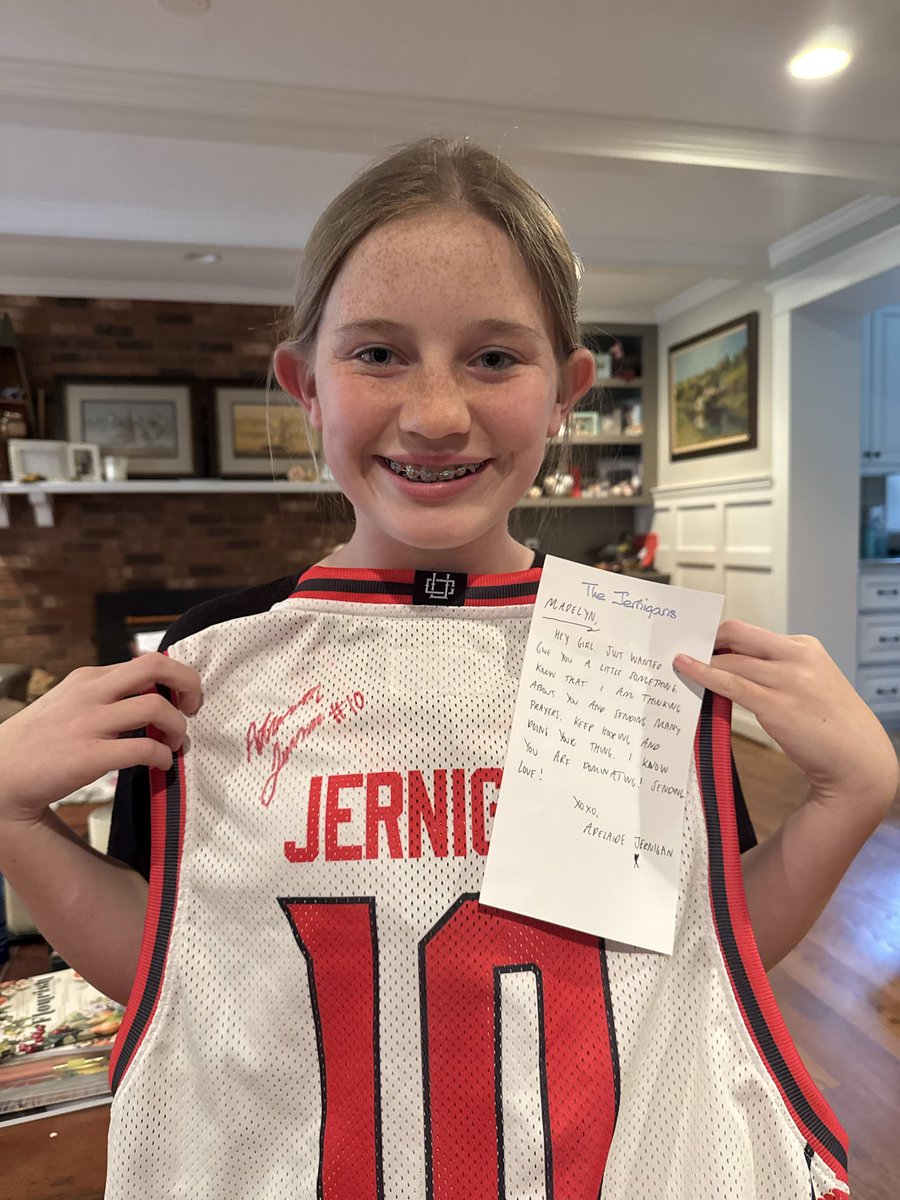 The Jernigans
MADELYN,
HEY GIRL. JUST WANTED TO
GIVE YOU A LITTLE SOMETHING.
KNOW THAT I AM THINKING
ABOUT YOU AND SENDING MANY
PRAYERS. KEEP HOOPING AND
DOING YOUR THING. I KNOW
YOU ARE DOMINATING! SENDING
LOVE!
XOXO,
ADELAIDE JERNIGAN
#10
JERNIG
10